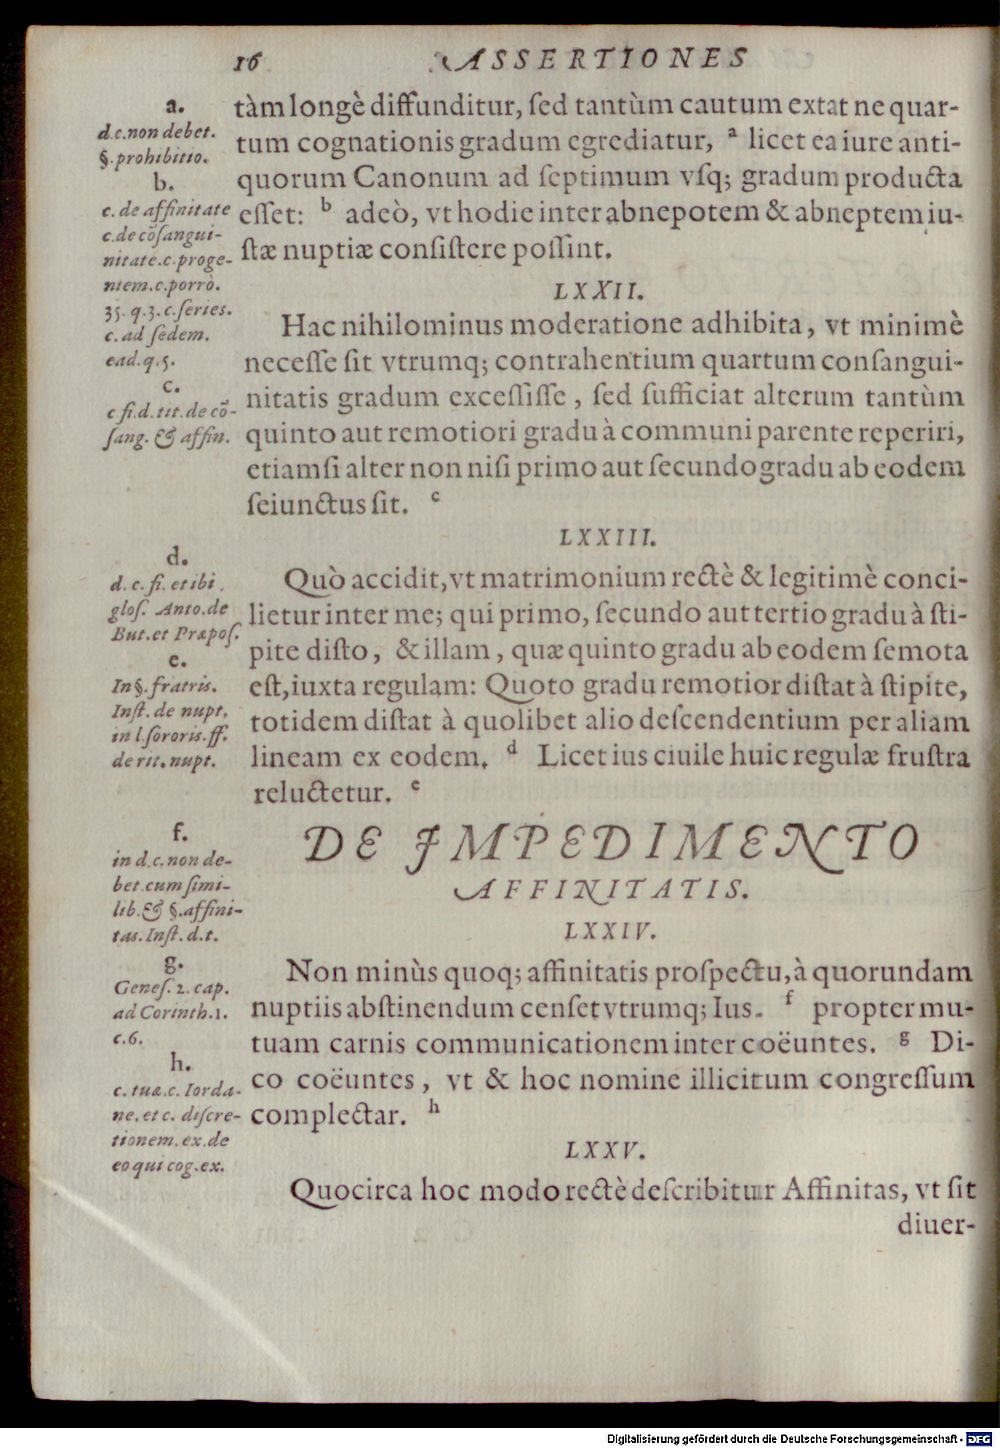 16 ASSERTIONES
tàm longè diffunditur, ſed tantùm cautum extat ne quar-
tum cognationis gradum egrediatur, a licet ea iure anti-
quorum Canonum ad ſeptimum vſq; gradum producta
eſſet: b adeò, vt hodie inter abnepotem & abneptem iu-
ſtæ nuptiæ conſiſtere poſſint.
LXXII.
Hac nihilominus moderatione adhibita, vt minimè
neceſſe ſit vtrumq; contrahentium quartum conſangui-
nitatis gradum exceſſiſſe, ſed ſufficiat alterum tantùm
quinto aut remotiori gradu à communi parente reperiri,
etiamſi alter non niſi primo aut ſecundo gradu ab eodem
ſeiunctus ſit. c
LXXIII.
Quò accidit, vt matrimonium rectè & legitimè conci-
lietur inter me; qui primo, ſecundo aut tertio gradu à ſti-
pite diſto, & illam, quæ quinto gradu ab eodem ſemota
eſt, iuxta regulam: Quoto gradu remotior diſtat à ſtipite,
totidem diſtat à quolibet alio deſcendentium per aliam
lineam ex eodem. d Licet ius ciuile huic regulæ fruſtra
reluctetur. e
DE IMPEDIMENTO
AFFINITATIS.
LXXIV.
Non minùs quoq; affinitatis proſpectu, à quorundam
nuptiis abſtinendum cenſet vtrumq; Ius. f propter mu-
tuam carnis communicationem inter coëuntes. g Di-
co coëuntes, vt & hoc nomine illicitum congreſſum
complectar. h
LXXV.
Quocirca hoc modo rectè deſcribitur Affinitas, vt ſit
diuer-
a.
d.c.non debet.
§.prohibitio.
b.
c. de affinitate
c.de cōſangui-
nitate.c.proge-
niem.c.porrò.
35. q.3.c.ſeries.
c. ad ſedem.
ead.q.5.
c.
c fi.d.tit.de cō-
ſang. & affin.
d.
d. c. fi. et ibi
gloſ. Anto.de
But.et Præpoſ.
e.
In §.fratris.
Inſt. de nupt.
in l.ſororis.ff.
de rit. nupt.
f.
in d.c.non de-
bet.cum ſimi-
lib.& §.affini-
tas.Inſt.d.t.
g.
Geneſ.2.cap.
ad Corinth.1.
c.6.
h.
c. tuæ.c. Iorda-
ne.et c. diſcre-
tionem.ex.de
eo qui cog.ex.
Digitalisierung gefördert durch die Deutsche Forschungsgemeinschaft - DFG